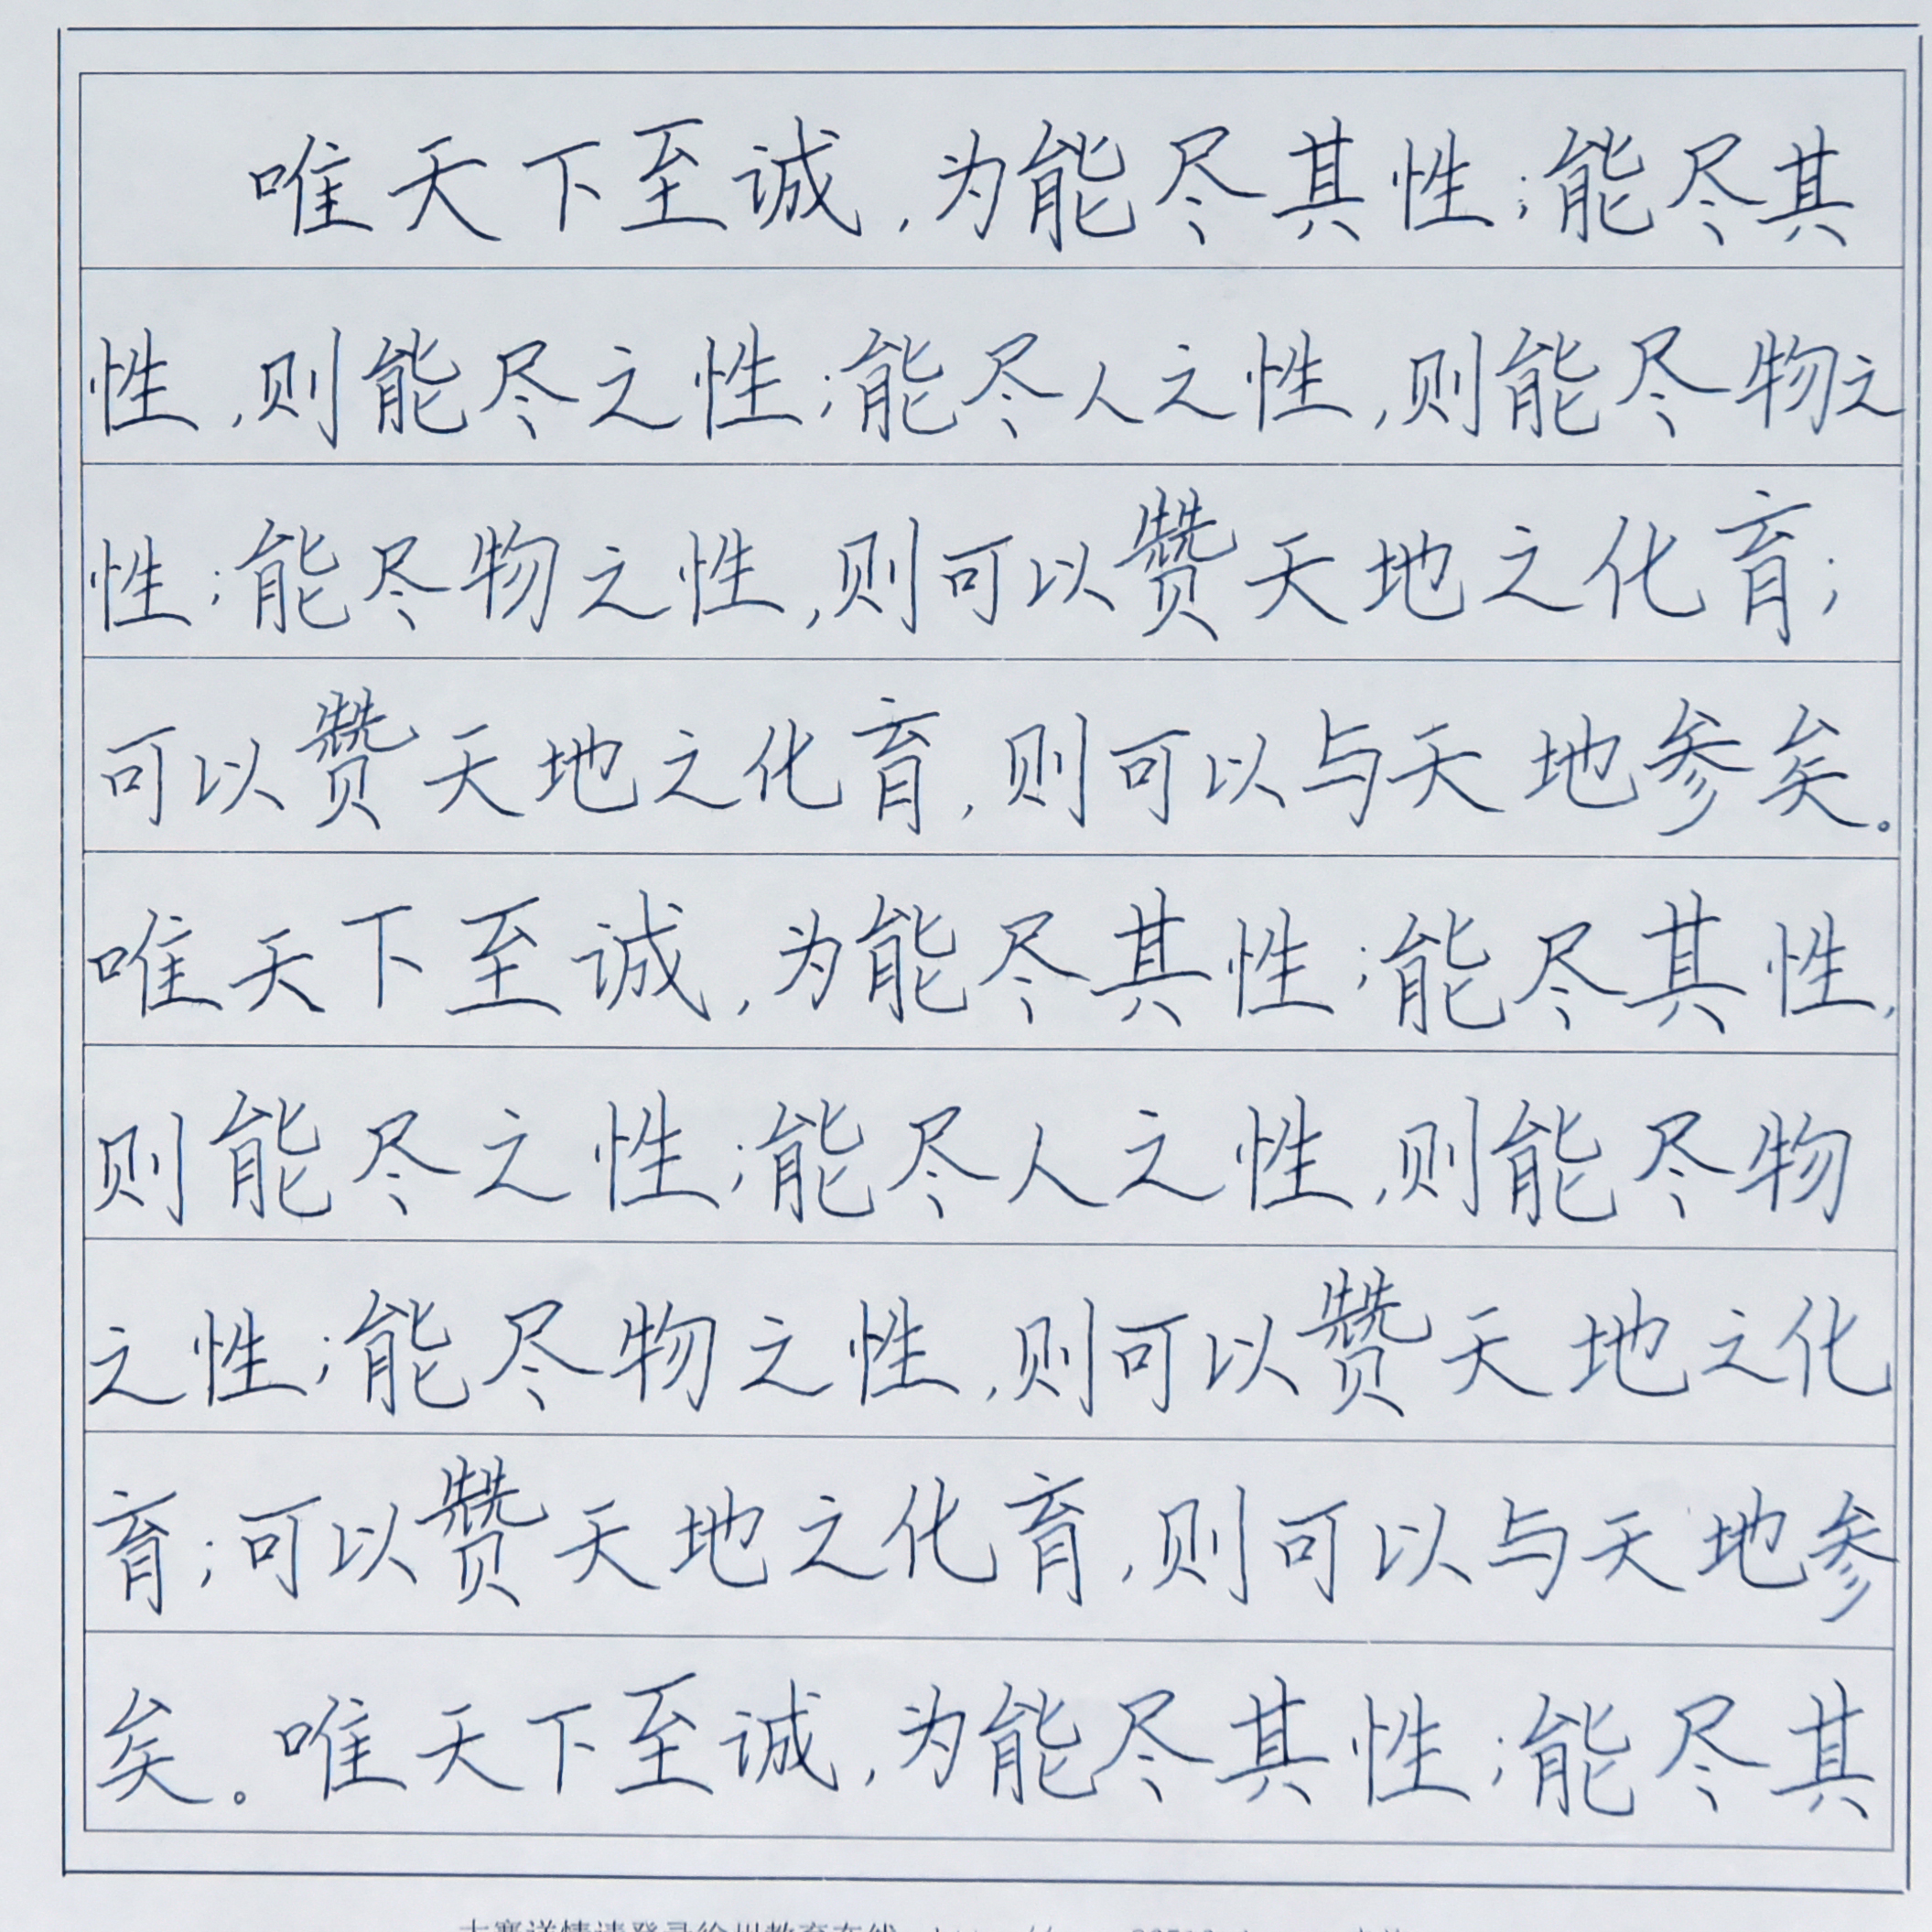 唯天下至诚,为能尽其性;能尽其
性,则能尽之性;能尽人之性,则能尽物之
性;能尽物之性,则可以赞天地之化育;
可以赞天地之化育,则可以与天地参矣。
唯天下至诚,为能尽其性;能尽其性,
则能尽之性;能尽人之性,则能尽物
之性;能尽物之性,则可以赞天地之化
育;可以赞天地之化育,则可以与天地参
矣。唯天下至诚,为能尽其性;能尽其